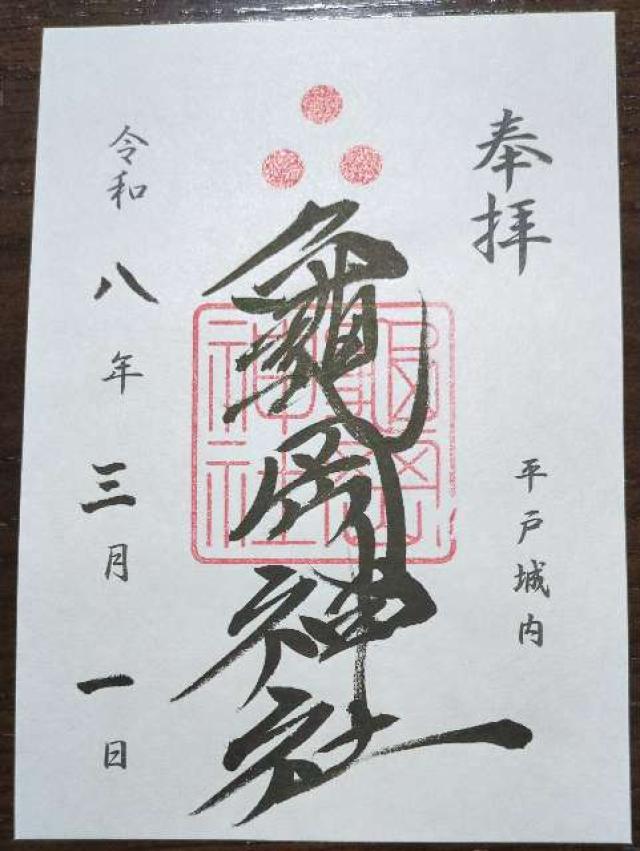 奉拝
平戸城内
龜岡神社
令和八年三月一日